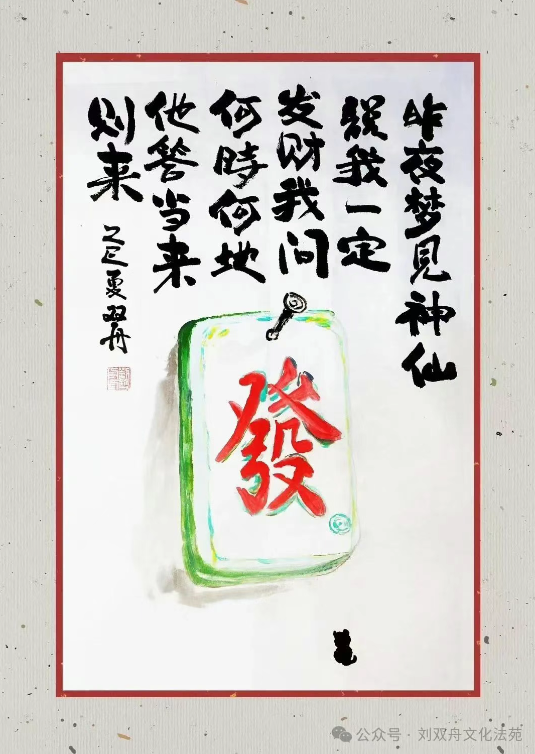 昨夜梦見神仙
説我一定
发财我问
何時何地
他答当来
则来
乙巳夏双舟
發
公众号·刘双舟文化法苑